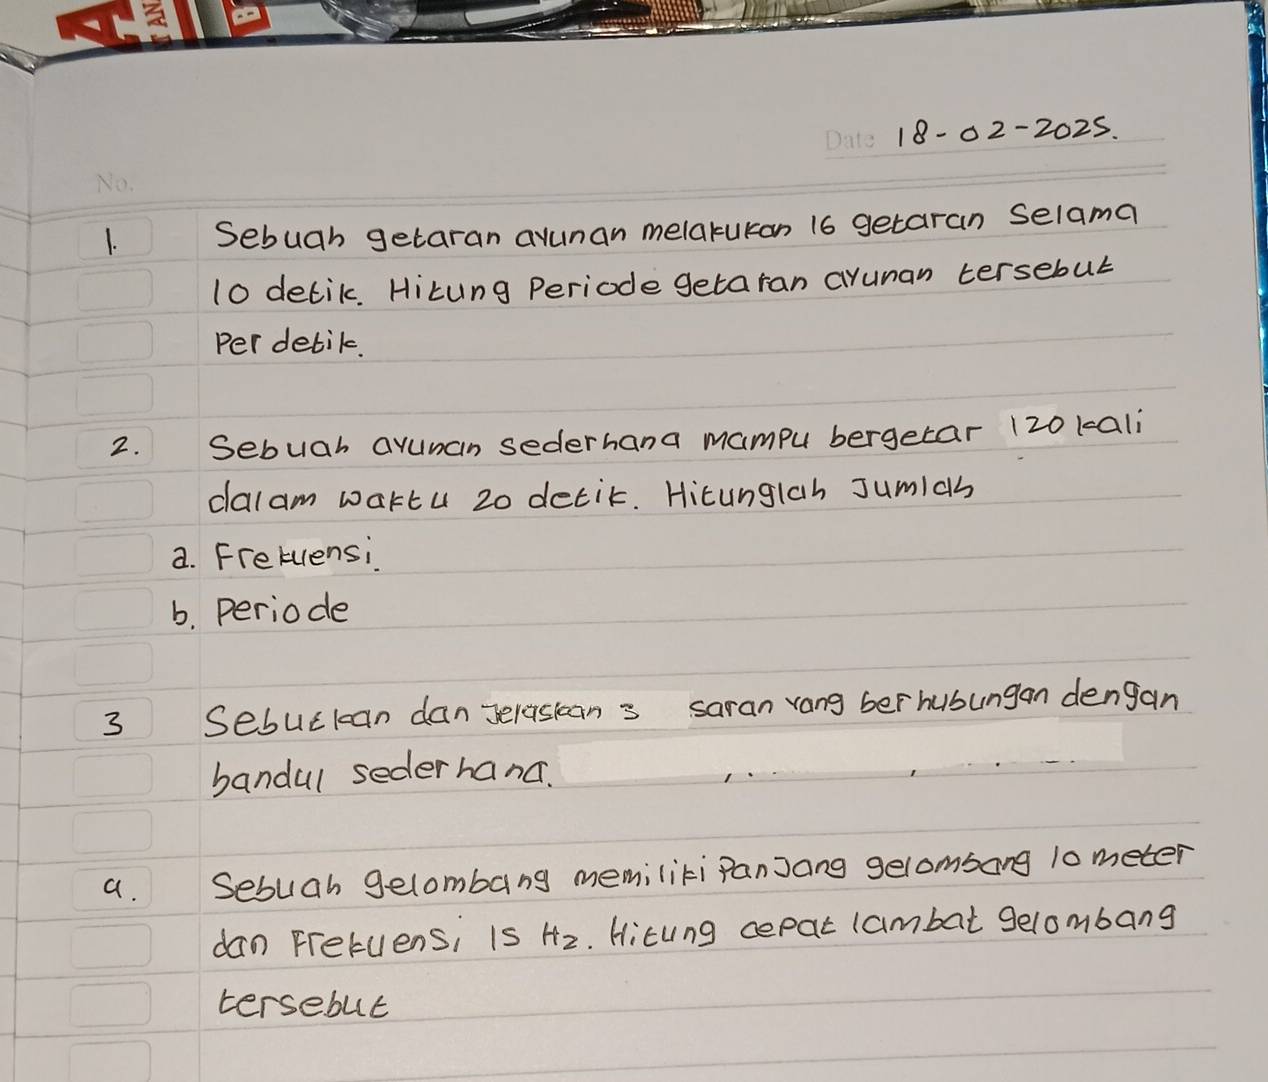 A
T AN
B
Date 18-02-2025.
No.
1. Sebuah getaran ayunan melakukan 16 getaran selama
10 detik. Hitung Periode getaran ayunan tersebut
Per detik.
2. Sebuah ayunan sederhana mampu bergetar 120 kali
dalam waktu 20 detik. Hitunglah Jumlah
a. Frekuensi.
b. Periode
3 Sebutkan dan Jelaskan 3 saran yang berhubungan dengan
bandul sederhana.
4. Sebuah gelombang memiliki Panjang gelombang 10 meter
dan Frekuensi 15 Hz. Hitung cepat lambat gelombang
tersebut